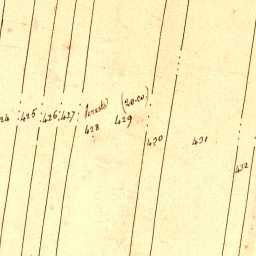 425 426 427 (20.00)
428 429
430 431
432